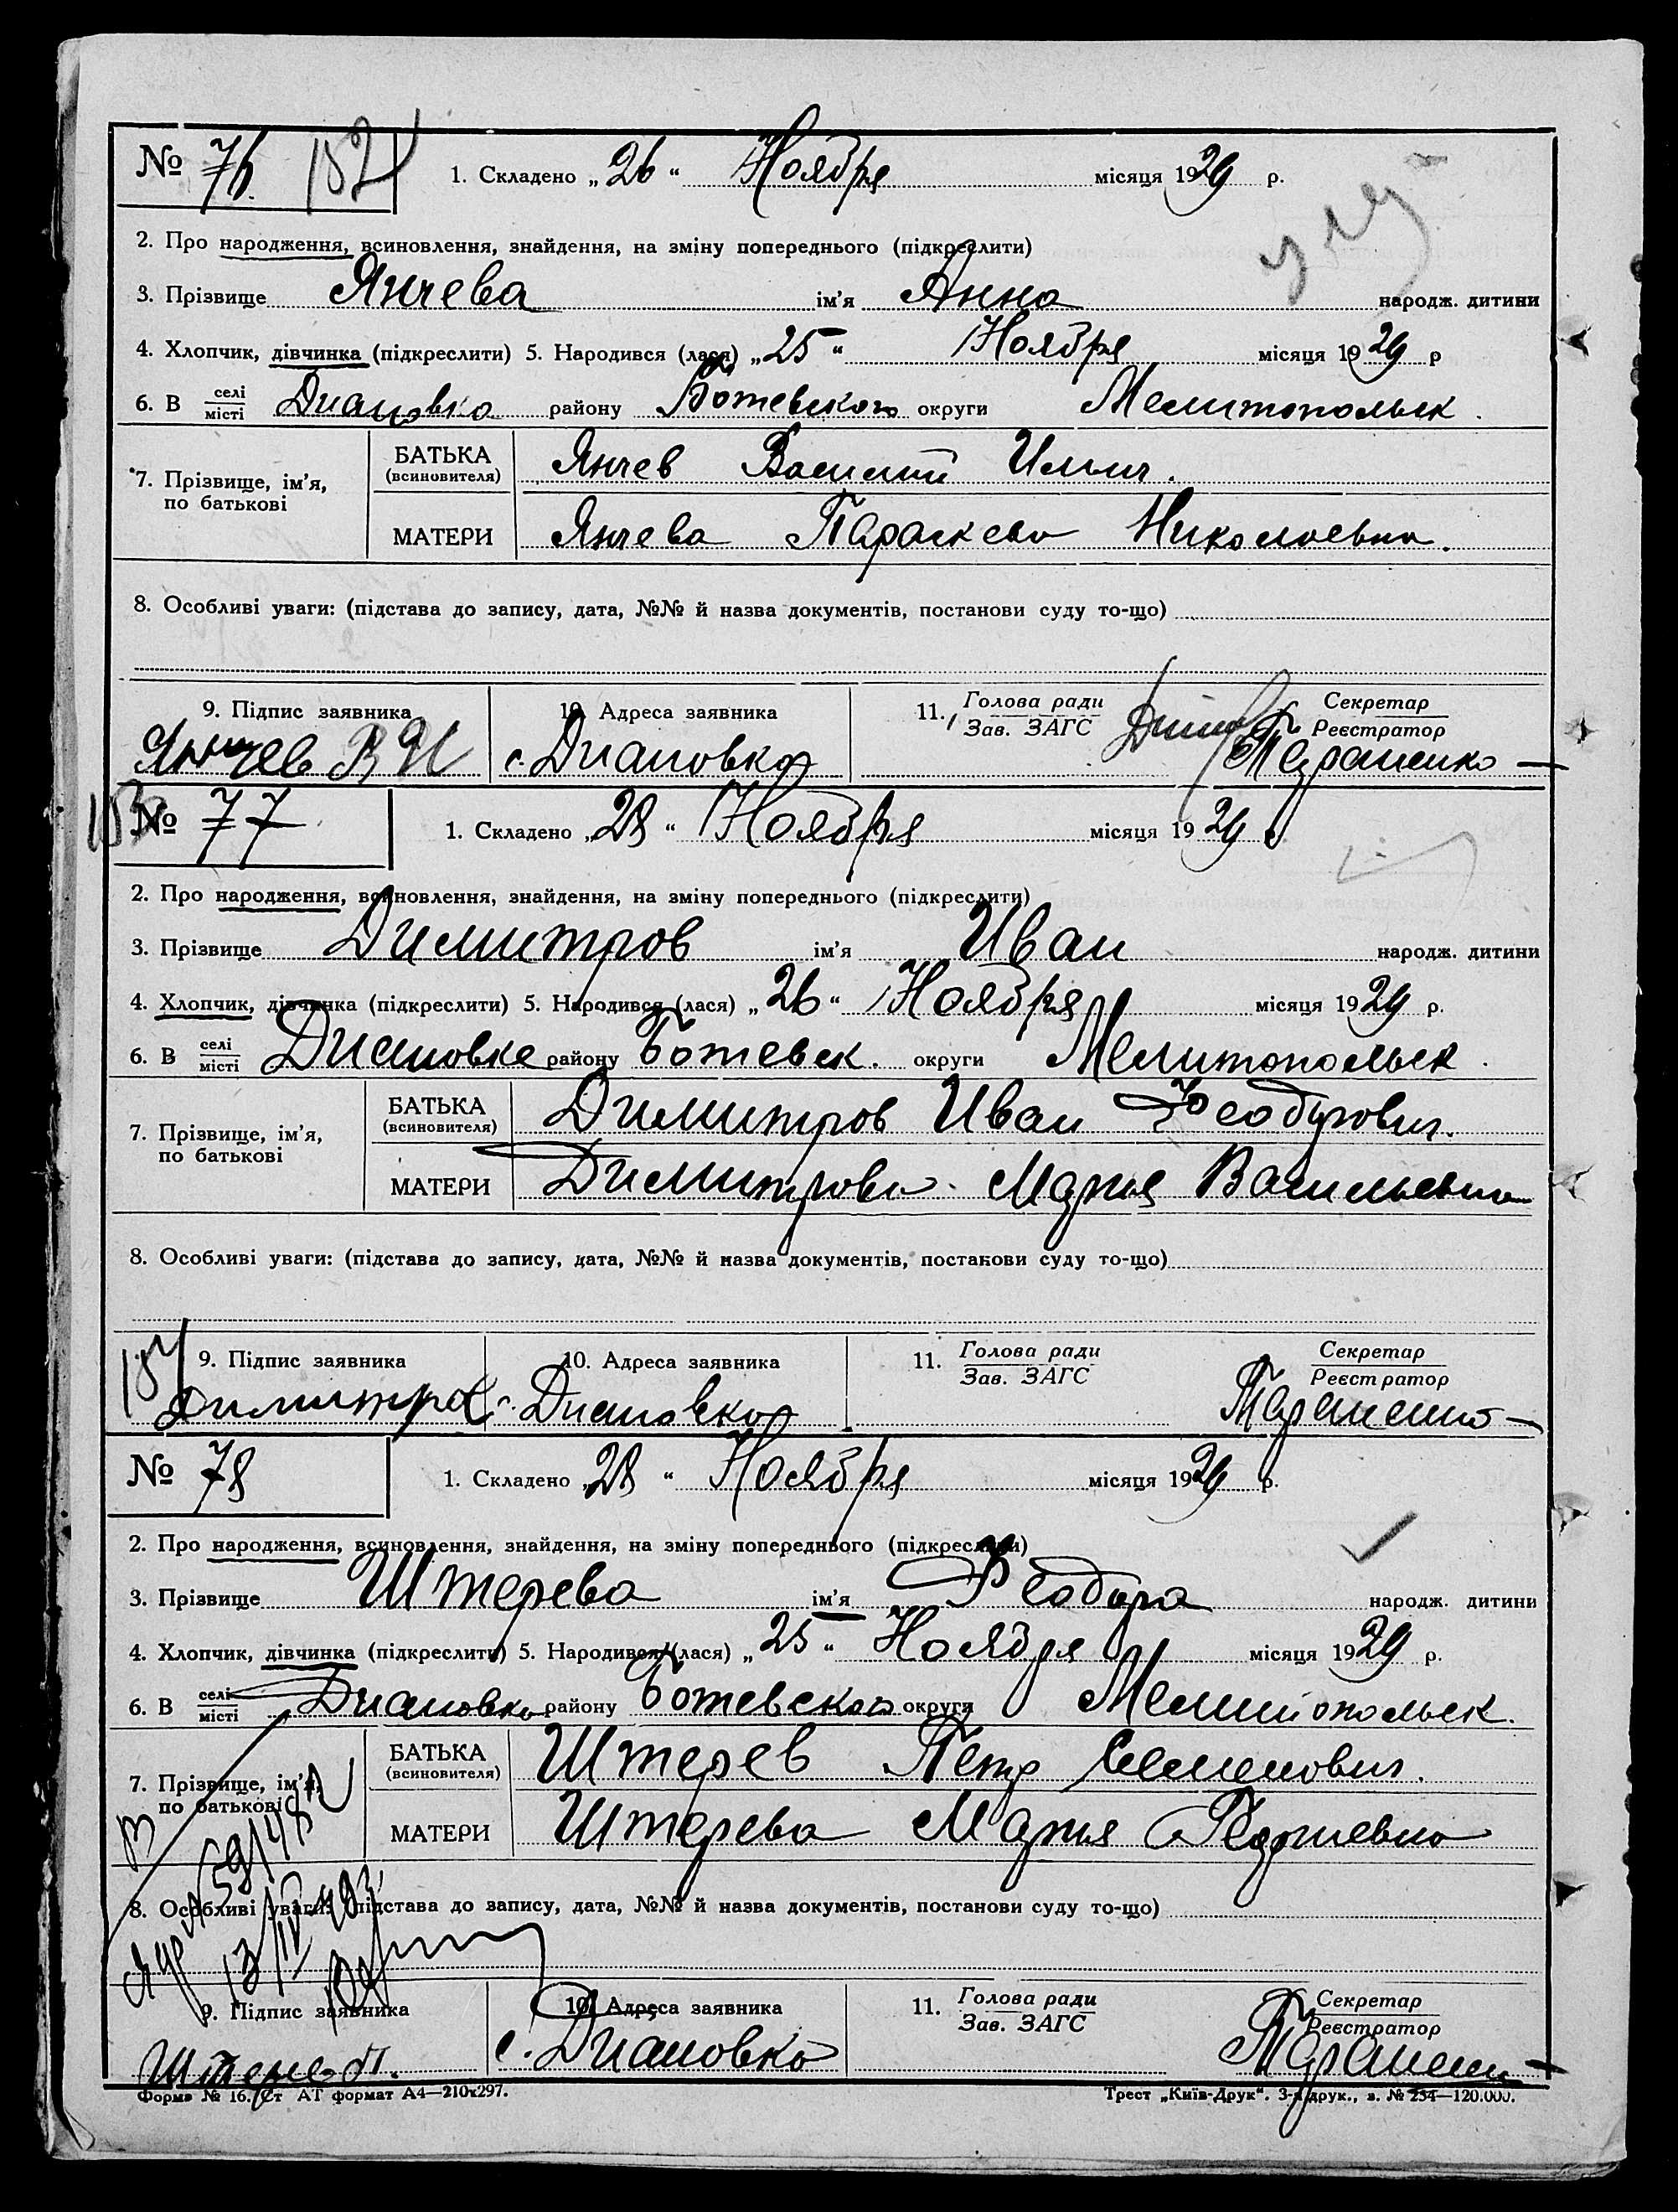 № 76. 152
1. Складено „26“ Ноября місяця 1929 р.
2. Про народження, всиновлення, знайдення, на зміну попереднього (підкреслити)
3. Прізвище Янчева ім'я Анна народж. дитини
4. Хлопчик, дівчинка (підкреслити) 5. Народився (лася) „25“ Ноября місяця 1929 р
6. В селі місті Диановка району Ботевского округи Мелитопольск.
7. Прізвище, ім'я, по батькові
БАТЬКА (всиновителя) Янчев Василий Ильич.
МАТЕРИ Янчева Параскева Николаевна.
8. Особливі уваги: (підстава до запису, дата, №№ й назва документів, постанови суду то-що)
9. Підпис заявника 10. Адреса заявника 11. Голова ради Зав. ЗАГС Секретар Реєстратор
Янчев В И с. Диановка Тараненко
153
№ 77
1. Складено „28“ Ноября місяця 1929 р.
2. Про народження, всиновлення, знайдення, на зміну попереднього (підкреслити)
3. Прізвище Димитров ім'я Иван народж. дитини
4. Хлопчик, дівчинка (підкреслити) 5. Народився (лася) „26“ Ноября місяця 1929 р.
6. В селі місті Диановке району Ботевск. округи Мелитопольск.
7. Прізвище, ім'я, по батькові
БАТЬКА (всиновителя) Димитров Иван Феодорович.
МАТЕРИ Димитрова Мария Васильевна
8. Особливі уваги: (підстава до запису, дата, №№ й назва документів, постанови суду то-що)
154
9. Підпис заявника 10. Адреса заявника 11. Голова ради Зав. ЗАГС Секретар Реєстратор
Димитров с. Диановка Тараненко
№ 78
1. Складено „28“ Ноября місяця 1929 р.
2. Про народження, всиновлення, знайдення, на зміну попереднього (підкреслити)
3. Прізвище Штерева ім'я Феодора народж. дитини
4. Хлопчик, дівчинка (підкреслити) 5. Народився (лася) „25“ Ноября місяця 1929 р.
6. В селі місті Диановка району Ботевского округи Мелитопольск.
7. Прізвище, ім'я, по батькові
БАТЬКА (всиновителя) Штерев Петр Семенович.
МАТЕРИ Штерева Мария Георгиевна
8. Особливі уваги: (підстава до запису, дата, №№ й назва документів, постанови суду то-що)
9. Підпис заявника 10. Адреса заявника 11. Голова ради Зав. ЗАГС Секретар Реєстратор
Штерев П. с. Диановка Тараненко
Форма № 16. Ст АТ формат А4—210х297. Трест „Київ-Друк“. 3-я друк., з. № 234—120.000.